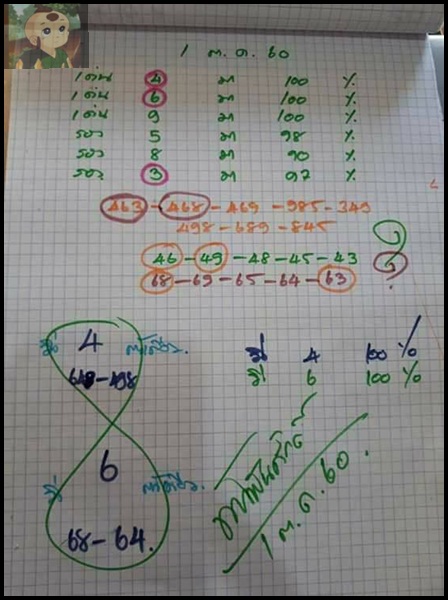 1 ต.ค. 60
เด่น 4 มา 100 %
เด่น 6 มา 100 %
เด่น 9 มา 100 %
รอง 5 มา 98 %
รอง 8 มา 90 %
รอง 3 มา 97 %
463 - 468 - 469 - 985 - 349
498 - 689 - 845
46 - 49 - 48 - 45 - 43
68 - 69 - 65 - 64 - 63
4
648 - 498
6
68 - 64.
4 100 %
6 100 %
1 ต.ค. 60.